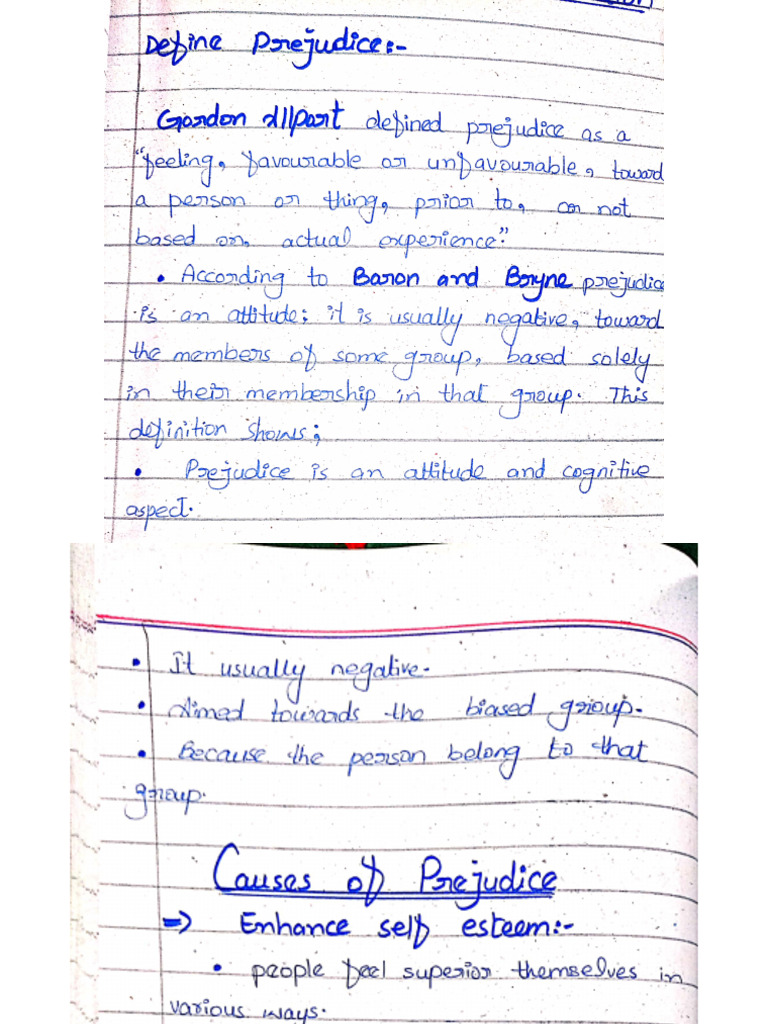 Define Prejudice:-
Gordon Allport defined prejudice as a
"feeling, favourable or unfavourable, toward
a person or thing, prior to, or not
based on, actual experience".
• According to Baron and Bryne prejudice
is an attitude; it is usually negative, toward
the members of some group, based solely
in their membership in that group. This
definition shows;
• Prejudice is an attitude and cognitive
aspect.
• It usually negative.
• Aimed towards the biased group.
• Because the person belong to that
group.
Causes of Prejudice
=> Enhance self esteem:-
• people feel superior themselves in
various ways.